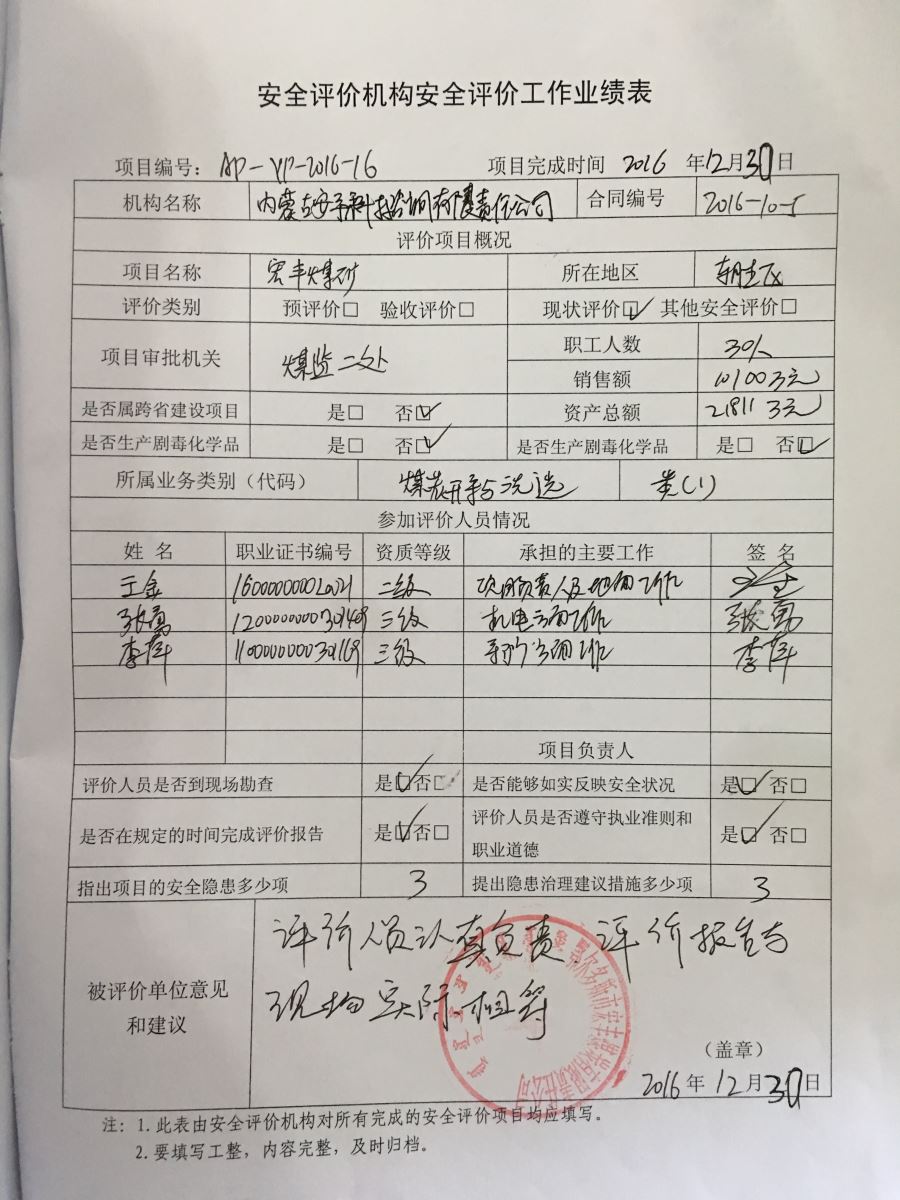 安全评价机构安全评价工作业绩表
项目编号：AP-YP-2016-16 项目完成时间 2016 年12月30日
机构名称 内蒙古安予科技咨询有限责任公司 合同编号 2016-10-5
评价项目概况
项目名称 宏丰煤矿 所在地区 东胜区
评价类别 预评价□ 验收评价□ 现状评价☑ 其他安全评价□
项目审批机关 煤监二处 职工人数 30人
销售额 10100万元
是否属跨省建设项目 是□ 否☑ 资产总额 21811万元
是否生产剧毒化学品 是□ 否☑ 是否生产剧毒化学品 是□ 否☑
所属业务类别（代码） 煤炭开采与洗选 类(1)
参加评价人员情况
姓 名 职业证书编号 资质等级 承担的主要工作 签 名
王金 二级 项目负责人及地面工作 王金
张勇 三级 机电方面工作 张勇
李萍 三级 李萍
项目负责人
评价人员是否到现场勘查 是☑否□ 是否能够如实反映安全状况 是☑否□
是否在规定的时间完成评价报告 是☑否□ 评价人员是否遵守执业准则和
职业道德 是☑否□
指出项目的安全隐患多少项 3 提出隐患治理建议措施多少项 3
被评价单位意见
和建议
评价人员认真负责，评价报告与
现场实际相符
（盖章）
2016 年 12 月 30 日
注：1. 此表由安全评价机构对所有完成的安全评价项目均应填写。
2. 要填写工整，内容完整，及时归档。